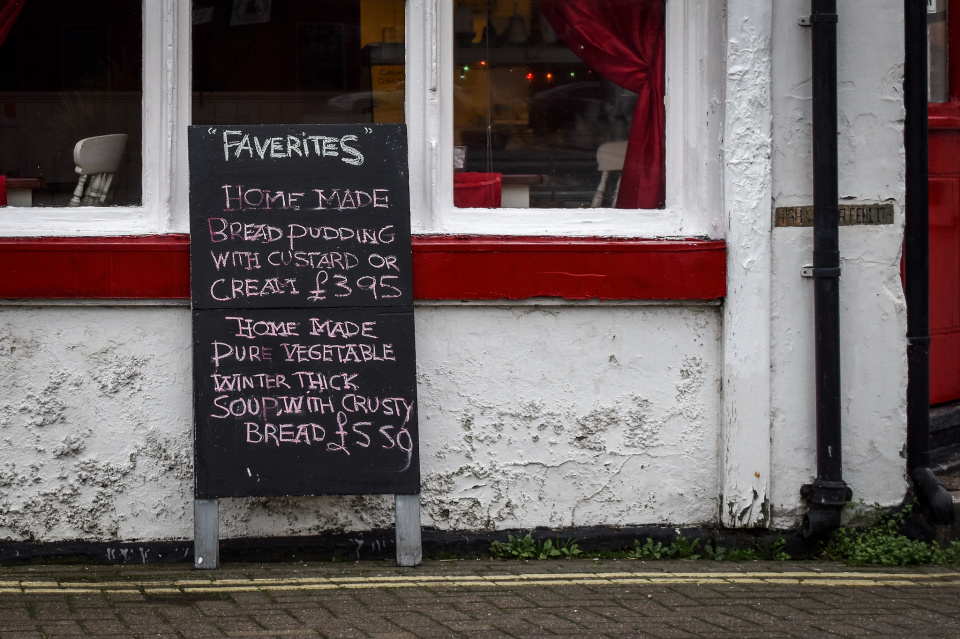 "FAVERITES"
HOME MADE
BREAD PUDDING
WITH CUSTARD OR
CREAM £3 95
HOME MADE
PURE VEGETABLE
WINTER THICK
SOUP, WITH CRUSTY
BREAD £5 50